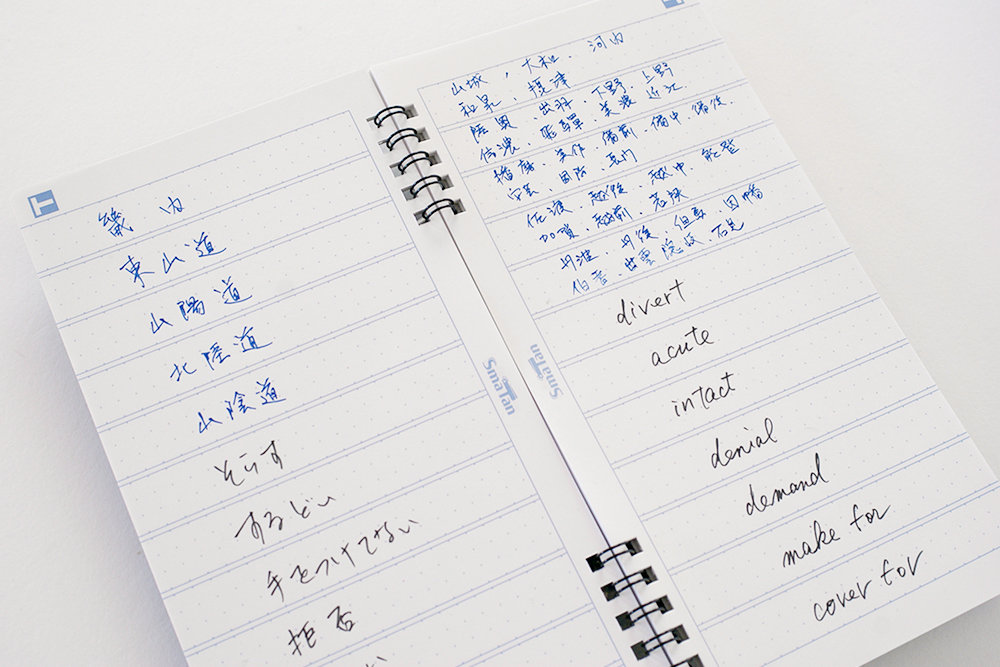 畿内
東山道
山陽道
北陸道
山陰道
そらす
するどい
手をつけてない
拒否
SmaTan
山城，大和．河内
和泉．摂津
陸奥．出羽．下野．上野
信濃．飛騨．美濃．近江
播磨．美作．備前．備中．備後．
安芸．周防．長門
佐渡．越後．越中．能登
加賀．越前．若狭
丹波．丹後．但馬．因幡
伯耆．出雲．隠岐．石見
divert
acute
intact
denial
demand
make for
cover for
SmaTan